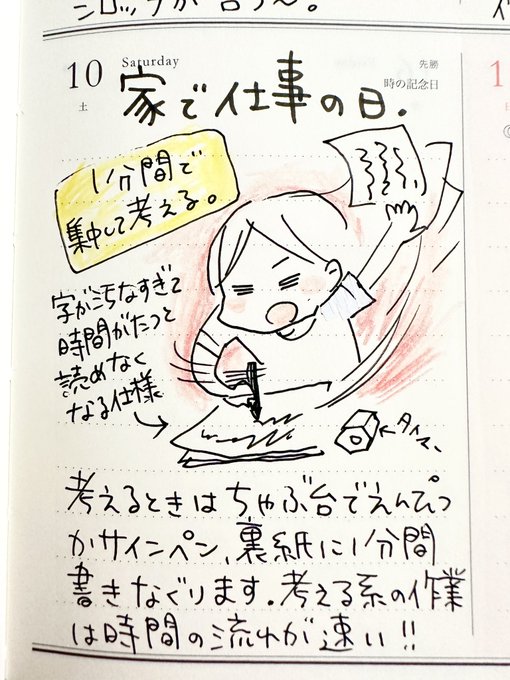 シロップが合う〜。
10
土
Saturday
先勝
時の記念日
家で仕事の日.
1分間で
集中して考える。
字が汚なすぎて
時間がたつと
読めなく
なる仕様
タイマー
考えるときはちゃぶ台でえんぴつ
かサインペン、裏紙に1分間
書きなぐります。考える系の作業
は時間の流れが速い!!
1